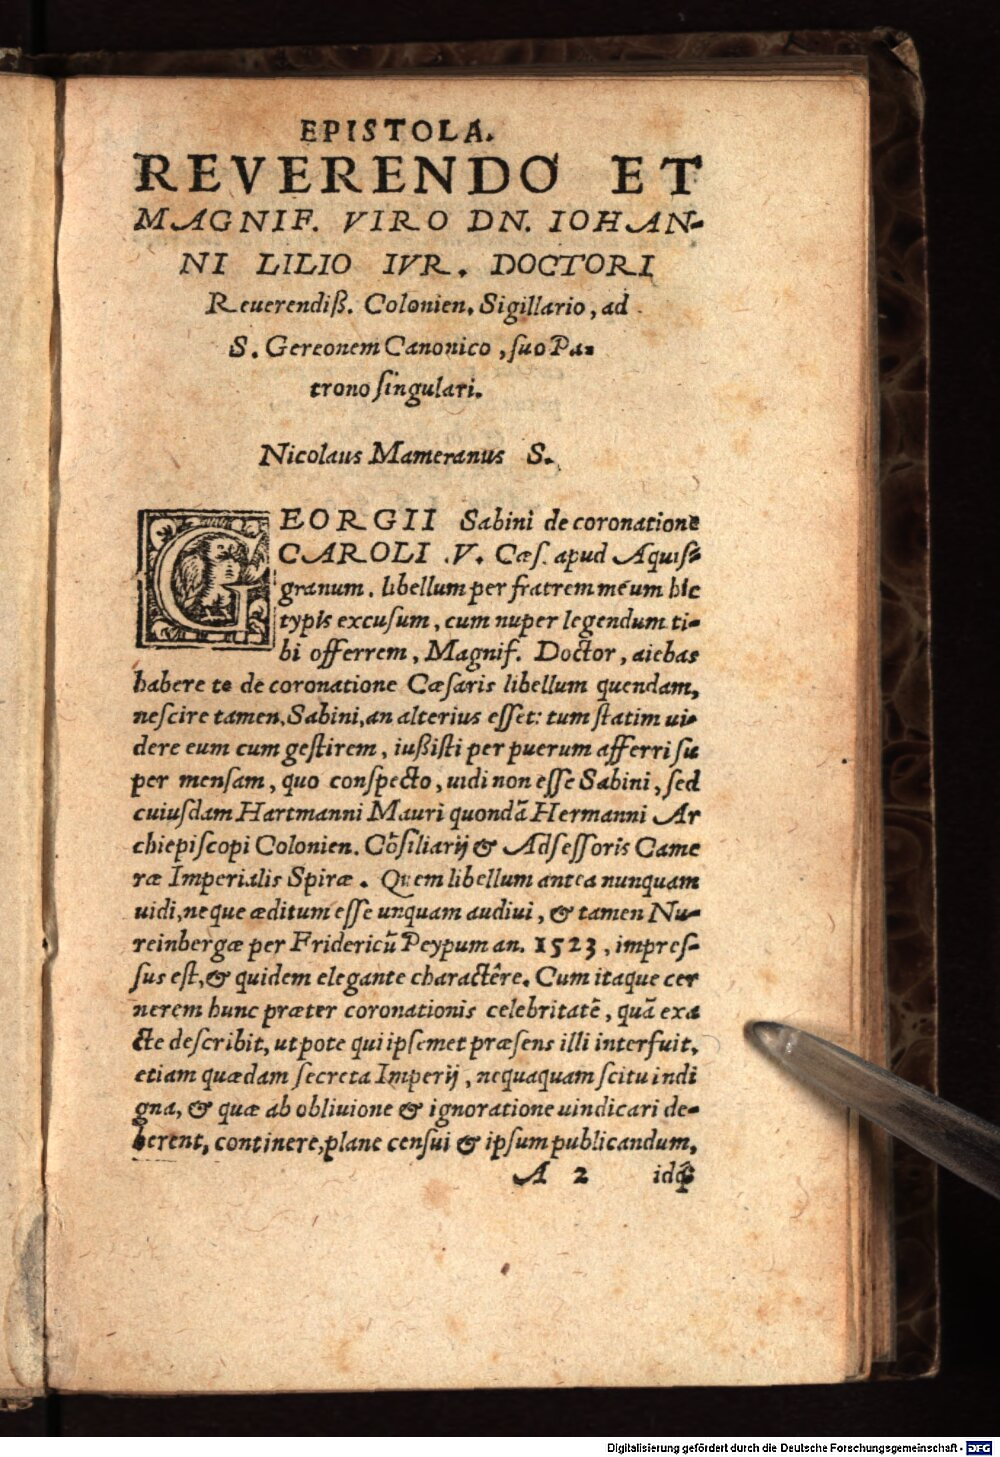 EPISTOLA.
REVERENDO ET
MAGNIF. VIRO DN. IOHAN-
NI LILIO IVR. DOCTORI
Reuerendiß. Colonien. Sigillario, ad
S. Gereonem Canonico, ſuo Pa-
trono ſingulari.
Nicolaus Mameranus S.
GEORGII Sabini de coronatione
CAROLI .V. Cæſ. apud Aquiſ-
granum. libellum per fratrem meum hic
typis excuſum, cum nuper legendum ti-
bi offerrem, Magnif. Doctor, aiebas
habere te de coronatione Cæſaris libellum quendam,
neſcire tamen, Sabini, an alterius eſſet: tum ſtatim ui-
dere eum cum geſtirem, iußiſti per puerum afferri ſu
per menſam, quo conſpecto, uidi non eſſe Sabini, ſed
cuiuſdam Hartmanni Mauri quondã Hermanni Ar
chiepiſcopi Colonien. Cõſiliarij & Adſeſſoris Came
ræ Imperialis Spiræ. Quem libellum antea nunquam
uidi, neque æditum eſſe unquam audiui, & tamen Nu-
reinbergæ per Fridericũ Peypum an. 1523, impreſ-
ſus eſt, & quidem elegante charactêre. Cum itaque cer
nerem hunc præter coronationis celebritatẽ, quã exa
cte deſcribit, utpote qui ipſemet præſens illi interfuit,
etiam quædam ſecreta Imperij, nequaquam ſcitu indi
gna, & quæ ab obliuione & ignoratione uindicari de-
berent, continere, plane cenſui & ipſum publicandum,
A 2 idq́;
Digitalisierung gefördert durch die Deutsche Forschungsgemeinschaft - DFG